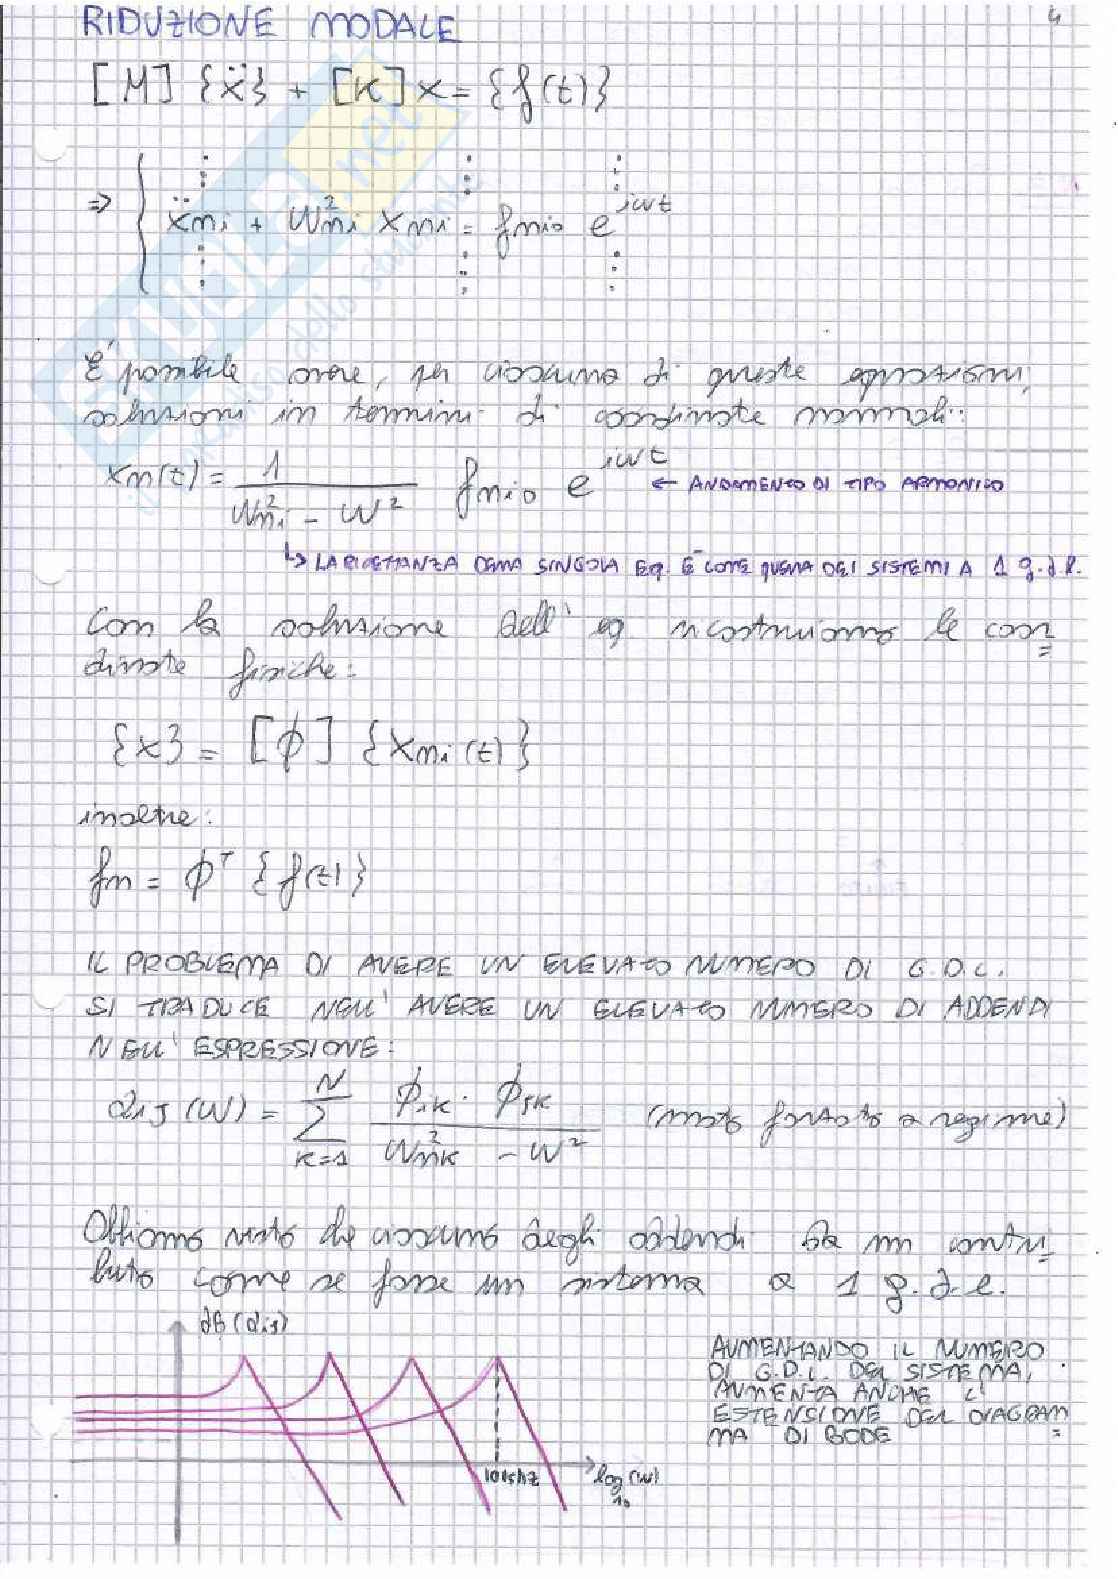 4
RIDUZIONE MODALE
[M] {ẍ} + [K] x = {f(t)}
⇒ { ẍni + ωni² xni = fnio e^iωt
È possibile avere, per ciascuna di queste equazioni,
soluzioni in termini di coordinate normali:
xn(t) = 1 / (ωni² - ω²) fnio e^iωt ← ANDAMENTO DI TIPO ARMONICO
↳ LA RICETTANZA DELLA SINGOLA EQ. È COME QUELLA DEI SISTEMI A 1 g.d.l.
Con la soluzione dell' eq ricostruiamo le coor
dinate fisiche:
{x} = [ϕ] {xni(t)}
inoltre:
fn = ϕ^T {f(t)}
IL PROBLEMA DI AVERE UN ELEVATO NUMERO DI G.D.L.
SI TRADUCE NELL' AVERE UN ELEVATO NUMERO DI ADDENDI
NELL' ESPRESSIONE:
αij (ω) = Σ k=1 N ϕik · ϕjk / (ωnk² - ω²) (moto forzato a regime)
Abbiamo visto che ciascuno degli addendi dà un contri
buto come se fosse un sistema a 1 g.d.l.
dB (αij)
AUMENTANDO IL NUMERO
DI G.D.L. DEL SISTEMA,
AUMENTA ANCHE L'
ESTENSIONE DEL DIAGRAM
MA DI BODE
10kHz
log10 (ω)
skuola.net
il paradiso dello studente